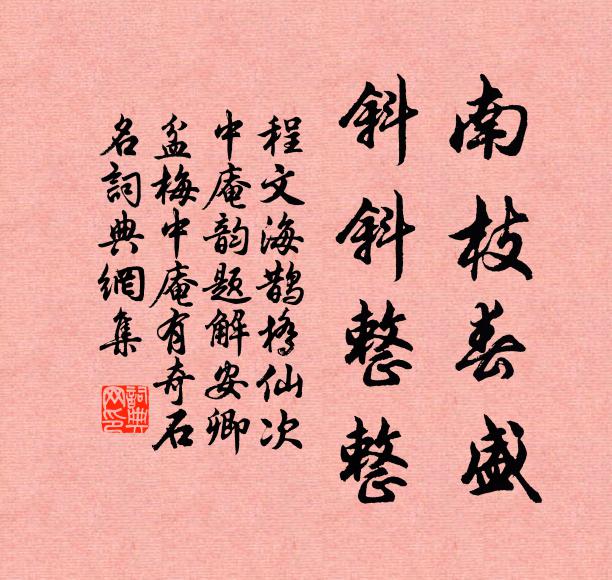 南枝春盛
斜斜整整
程文海鹊桥仙次
中庵韵题解安卿
盆梅中庵有奇石
名詞典網集
詞典
网印